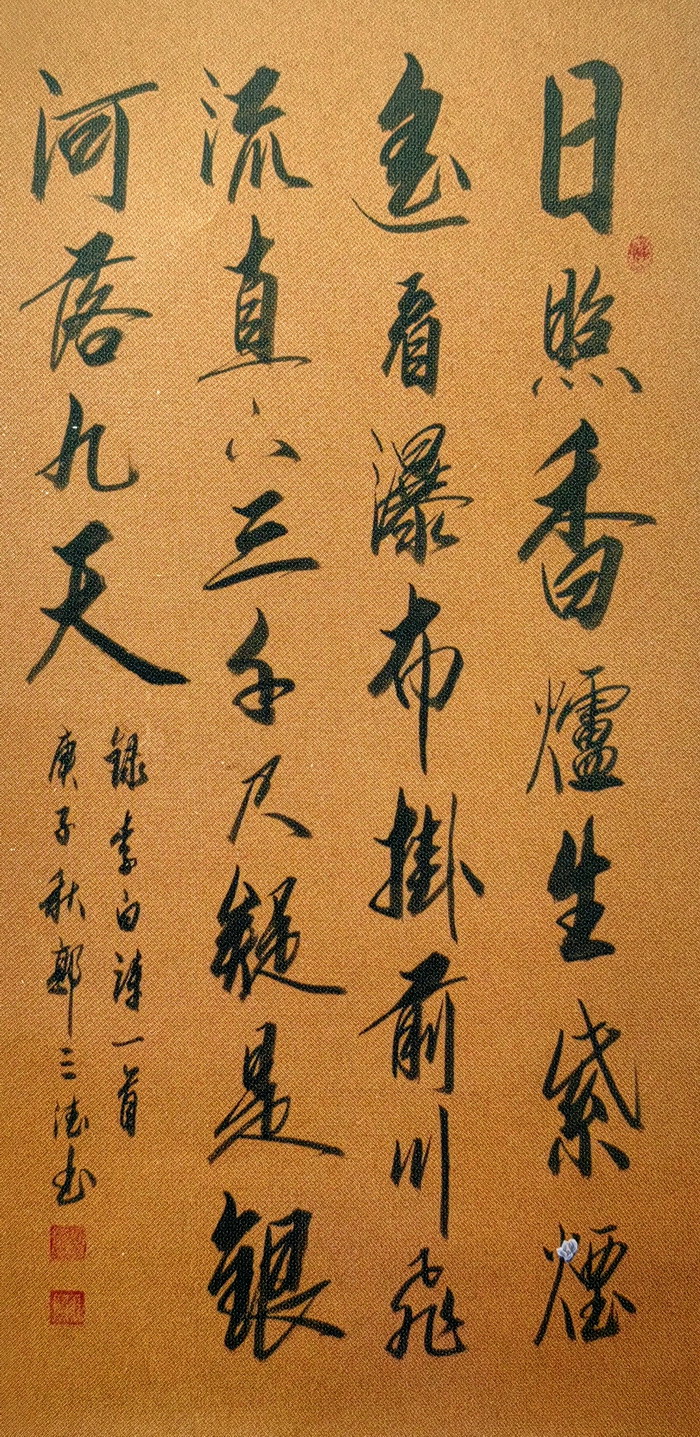 日照香爐生紫煙
遙看瀑布掛前川飛
流直下三千尺疑是銀
河落九天
錄李白詩一首
庚子秋郭三德书